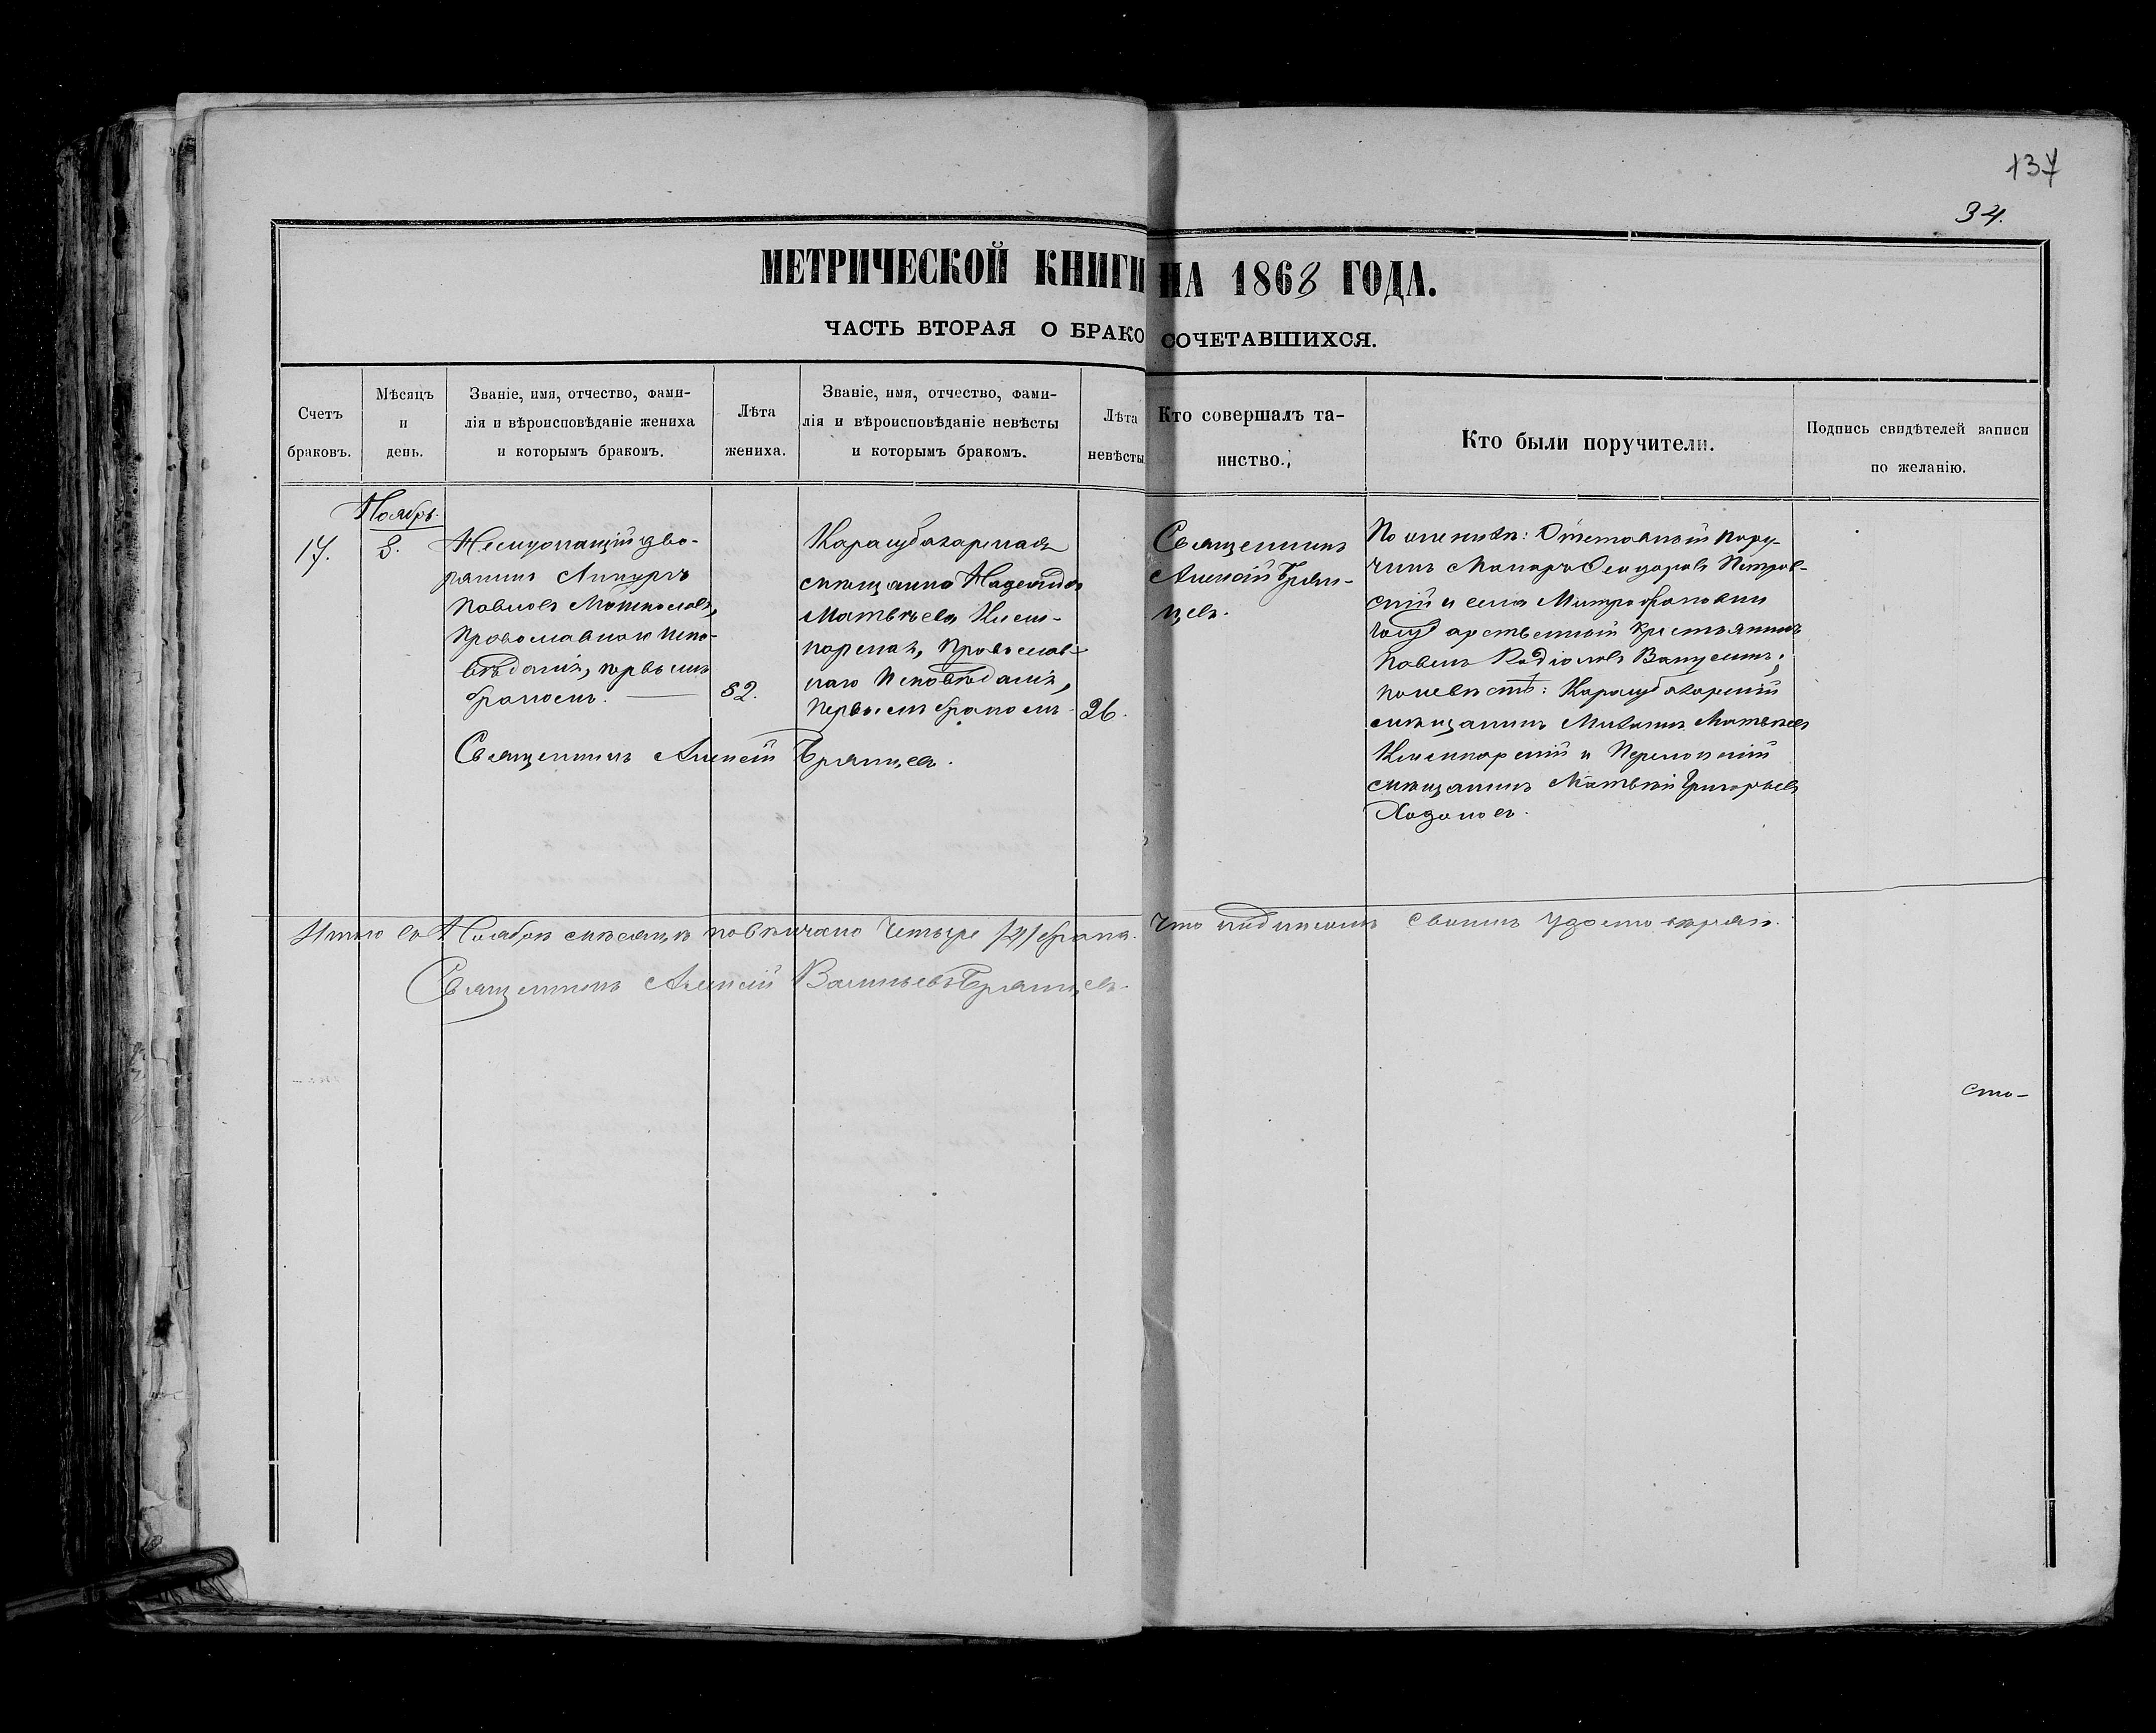 137
34.
МЕТРИЧЕСКОЙ КНИГИ НА 1868 ГОДА.
ЧАСТЬ ВТОРАЯ О БРАКОСОЧЕТАВШИХСЯ.
Счетъ
браковъ.
Мѣсяцъ
и
день.
Званіе, имя, отчество, фами-
лія и вѣроисповѣданіе жениха
и которымъ бракомъ.
Лѣта
жениха.
Званіе, имя, отчество, фами-
лія и вѣроисповѣданіе невѣсты
и которымъ бракомъ.
Лѣта
невѣсты
Кто совершалъ та-
инство.
Кто были поручители.
Подпись свидѣтелей записи
по желанію.
Ноябрь.
17.
8.
Неслужащій дво-
рянинъ
Павловъ
Православнаго испо-
вѣданія, первымъ
бракомъ.
32.
Карасубазарская
мѣщанка Надежда
Матвѣева
Православ-
наго Исповѣданія,
первымъ бракомъ
26.
Священникъ
Алексій Брян-
цевъ.
По женихѣ: Отставной пору-
чикъ Макаръ Ѳеодоровъ Петров-
скій и села Митрофановки
государственный крестьянинъ
Павелъ Родіоновъ
по невѣстѣ: Карасубазарскій
мѣщанинъ Матвѣевъ
и Перекопскій
мѣщанинъ Матвѣй Григорьевъ
Ходаковъ.
Священникъ Алексій Брянцевъ.
Итого въ Ноябрѣ мѣсяцѣ повѣнчано четыре /4/ брака. Что подписомъ своимъ удостовѣряю.
Священникъ Алексій Васильевъ Брянцевъ.
сто-